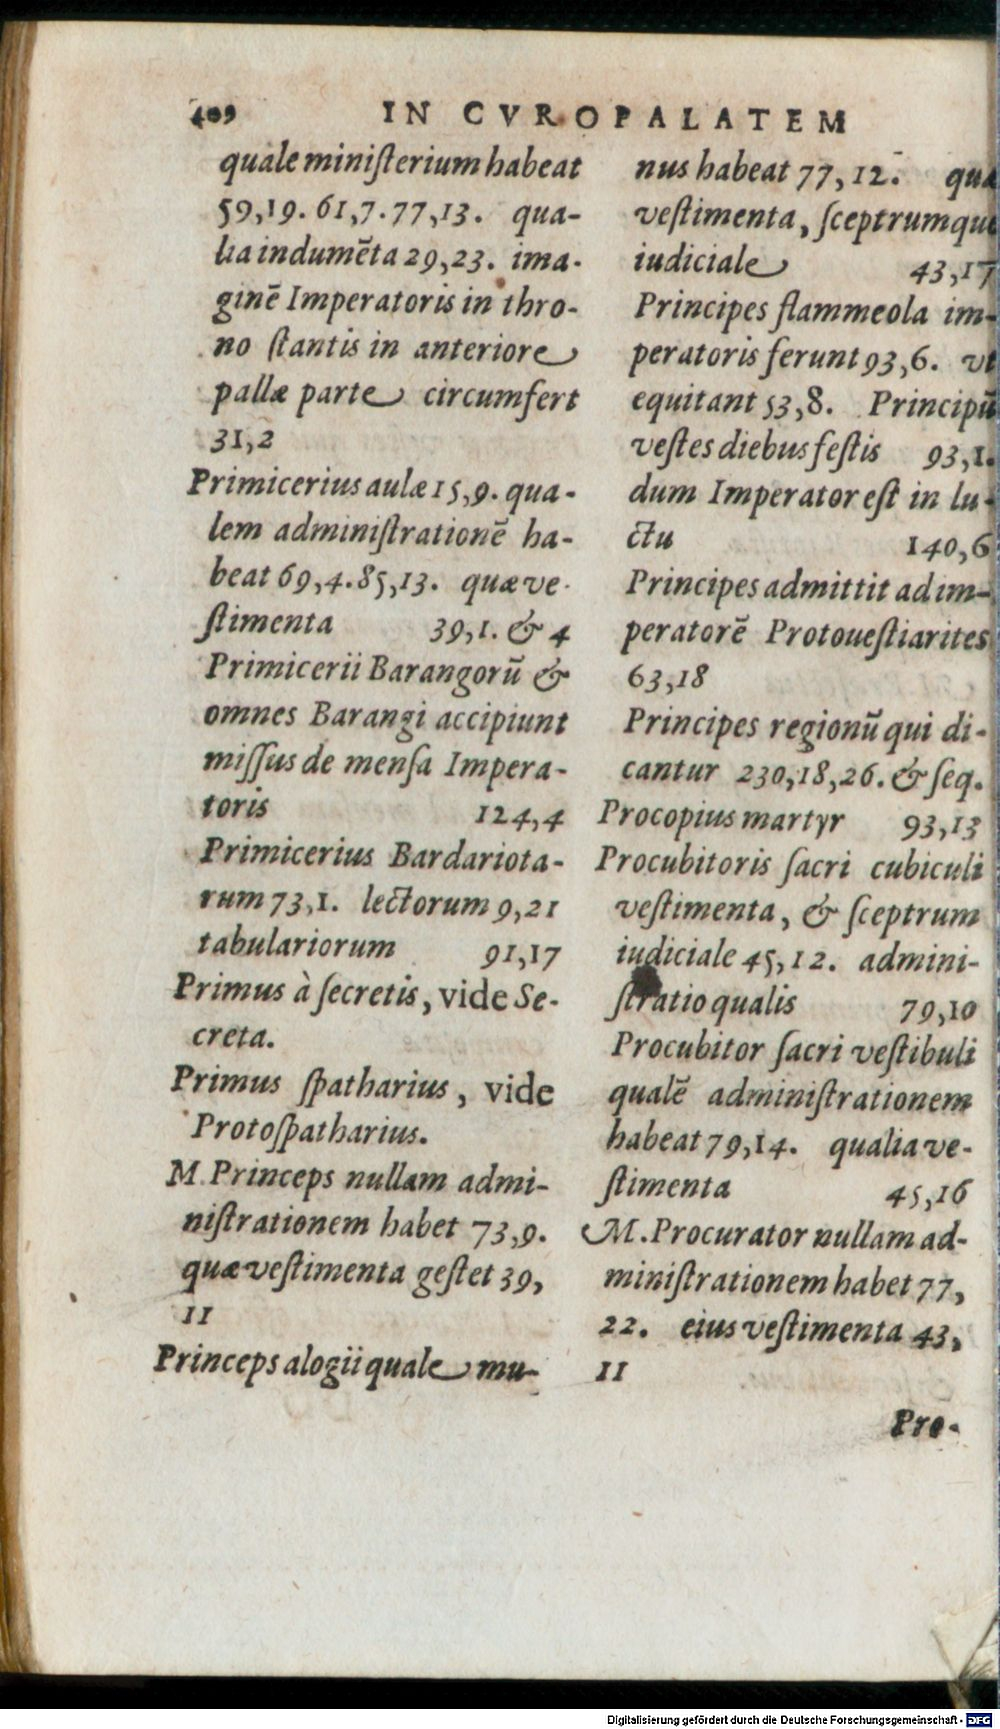 409 IN CVROPALATEM
quale miniſterium habeat
59,19. 61,7. 77,13. qua-
lia indumēta 29,23. ima-
ginē Imperatoris in thro-
no ſtantis in anteriore
pallæ parte circumfert
31,2
Primicerius aulæ 15,9. qua-
lem adminiſtrationē ha-
beat 69,4. 85,13. quæ ve-
ſtimenta 39,1. & 4
Primicerii Barangorū &
omnes Barangi accipiunt
miſſus de menſa Impera-
toris 124,4
Primicerius Bardariota-
rum 73,1. lectorum 9,21
tabulariorum 91,17
Primus à ſecretis, vide Se-
creta.
Primus ſpatharius, vide
Protoſpatharius.
M. Princeps nullam admi-
niſtrationem habet 73,9.
quæ veſtimenta geſtet 39,
11
Princeps alogii quale mu-
nus habeat 77,12. quæ
veſtimenta, ſceptrumque
iudiciale 43,17
Principes flammeola im-
peratoris ferunt 93,6. vt
equitant 53,8. Principū
veſtes diebus feſtis 93,1.
dum Imperator eſt in lu-
ctu 140,6
Principes admittit ad im-
peratorē Protoueſtiarites
63,18
Principes regionū qui di-
cantur 230,18,26. & ſeq.
Procopius martyr 93,13
Procubitoris ſacri cubiculi
veſtimenta, & ſceptrum
iudiciale 45,12. admini-
ſtratio qualis 79,10
Procubitor ſacri veſtibuli
qualē adminiſtrationem
habeat 79,14. qualia ve-
ſtimenta 45,16
M. Procurator nullam ad-
miniſtrationem habet 77,
22. eius veſtimenta 43,
11
Pro-
Digitalisierung gefördert durch die Deutsche Forschungsgemeinschaft - DFG